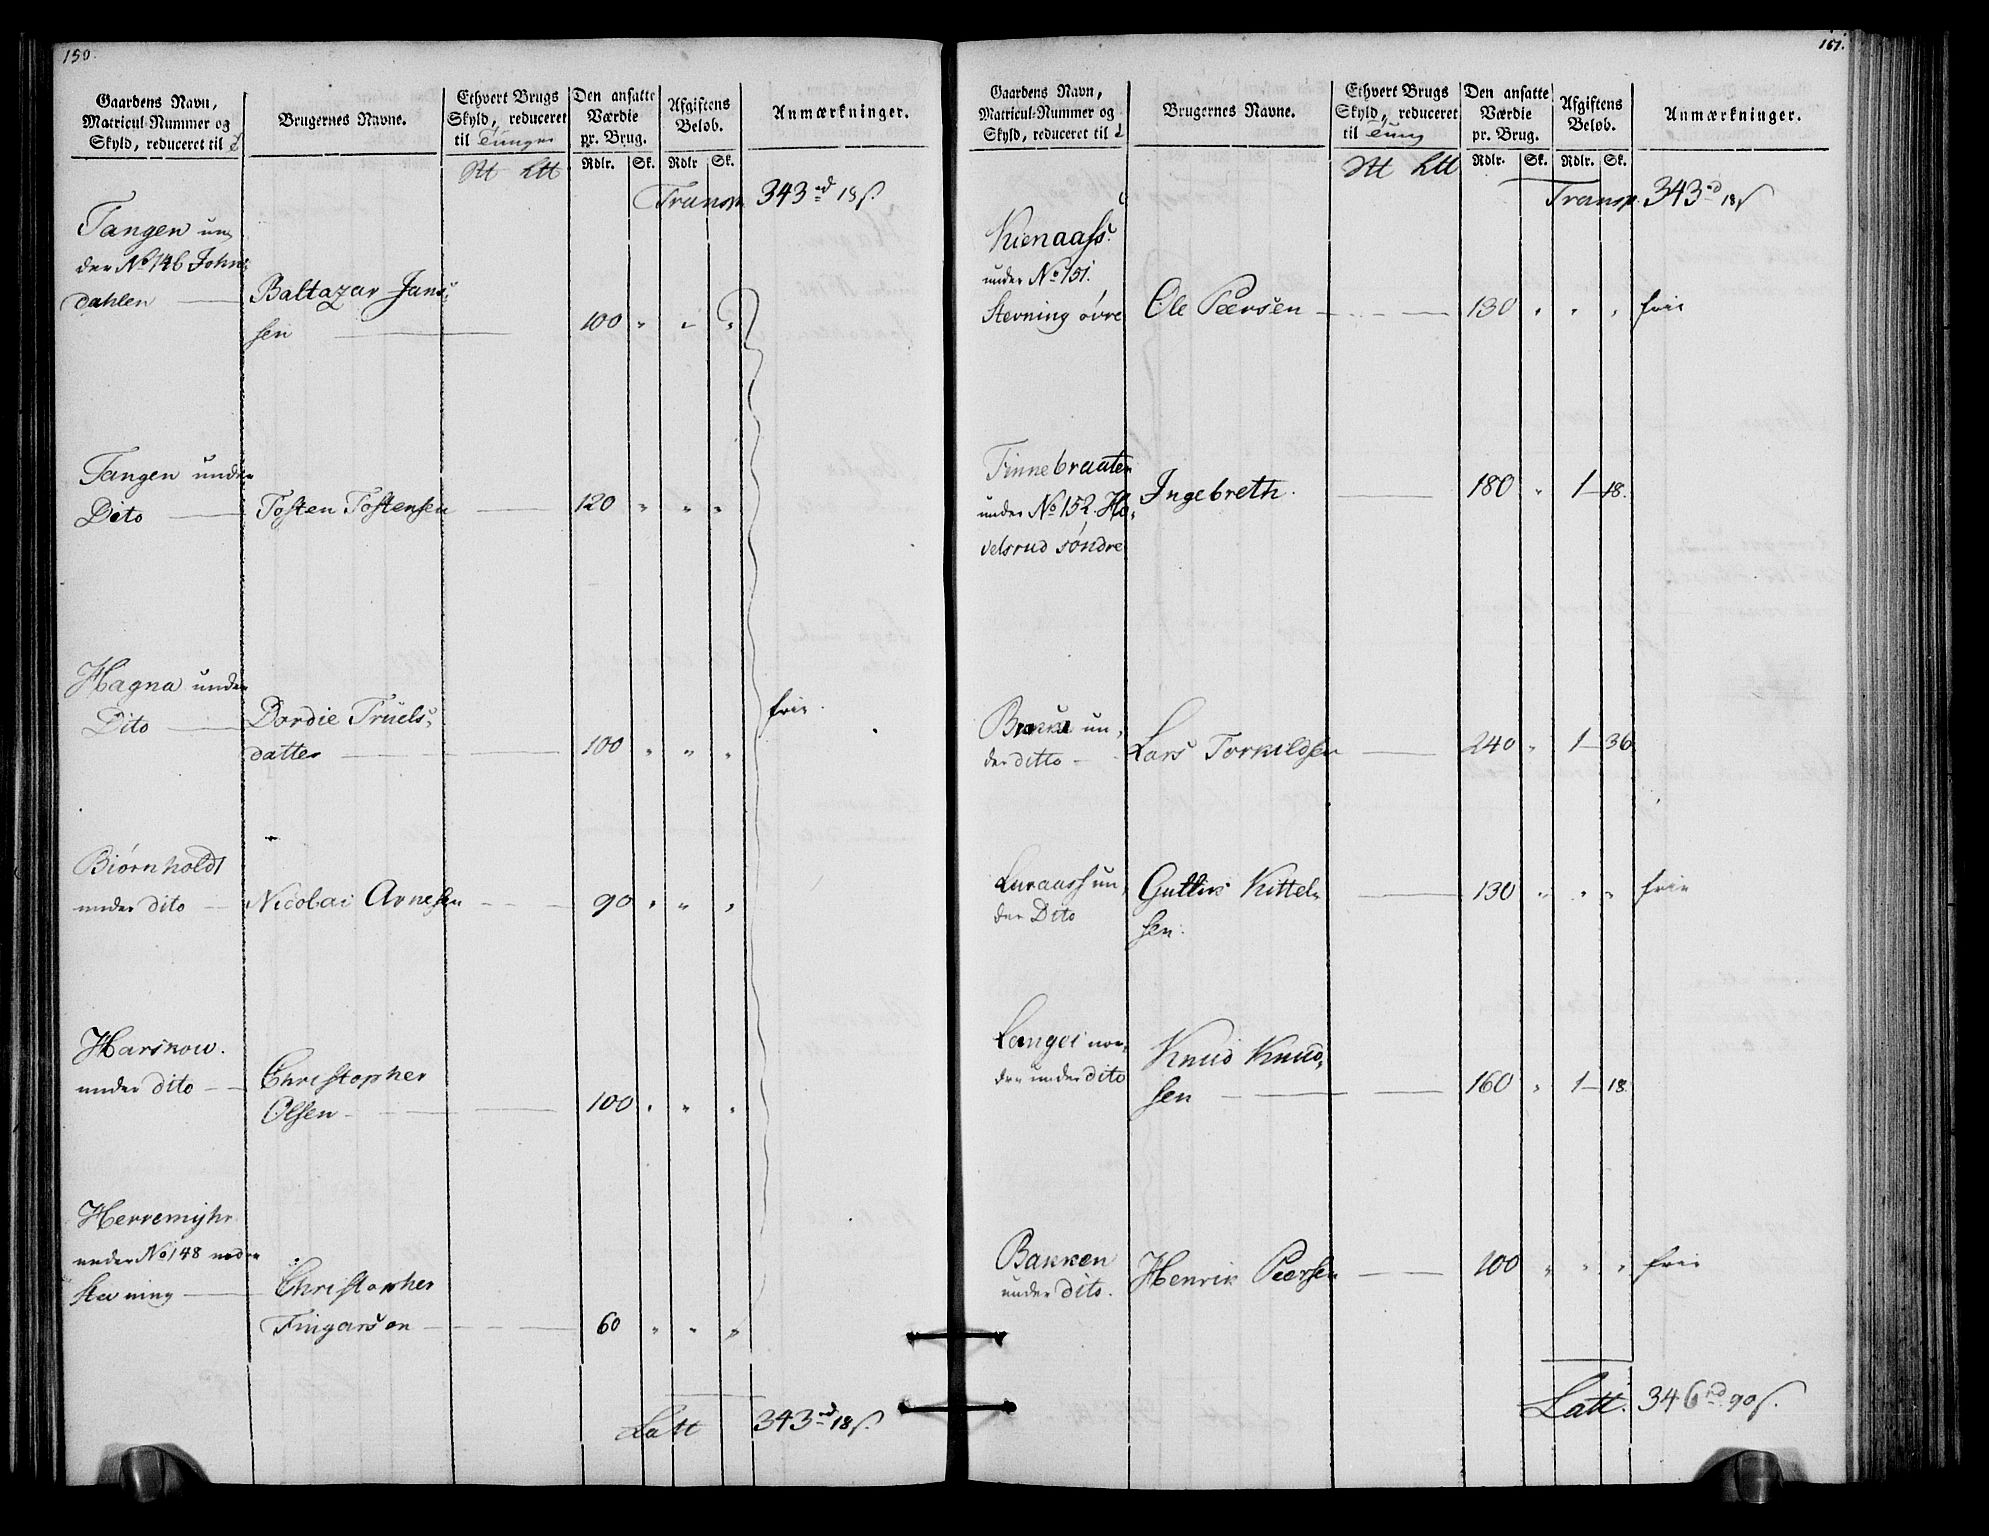 150.
Gaardens Navn,
Matricul-Nummer og
Skyld, reduceret til
Brugernes Navne.
Ethvert Brugs
Skyld, reduceret
til Tunge
Den ansatte
Værdie
pr. Brug.
Afgiftens
Beløb.
Anmærkninger.
Rdlr. Sk. Rdlr Sk.
Transp. 343 rd 18 s.
Tangen un
der No 146 Johns
dahlen Baltazar Jans
sen 100 " " "
Tangen under
Dito Tosten Tostensen 120 " " "
Hagna under
Dito Dordie Truels
datter 100 " " " frie.
Biørnholdt
under dito Nicolai Arnesen 90 " " "
Harskow.
under dito Christopher
Olsen 100 " " "
Herremyhr
under No 148 nedre
Stevning Christopher
Fingarsøn 60 " " "
Latt 343 rd 18 s.
151.
Gaardens Navn,
Matricul-Nummer og
Skyld, reduceret til
Brugernes Navne.
Ethvert Brugs
Skyld, reduceret
til Tung
Den ansatte
Værdie
pr. Brug.
Afgiftens
Beløb.
Anmærkninger.
Rdlr. Sk. Rdlr. Sk.
Transp. 343 rd 18 s
Kienaass.
under No 151.
Stevning øvre Ole Peersen 130 " " " frie
Finnebraaten
under No 152. Ho
velsrud søndre Ingebreth. 180 " 1 - 18.
un
der ditto Lars Torkildsen 240 " 1 - 36
Luraass un
der Dito Gutlik Kittel
sen. 130 " " " frie
Langei nor
dre under dito Knud Knud
sen 160 " 1 - 18.
Bakken
under dito. Henrik Peersen 100 " " " frie
Latt. 346 rd 90 s.